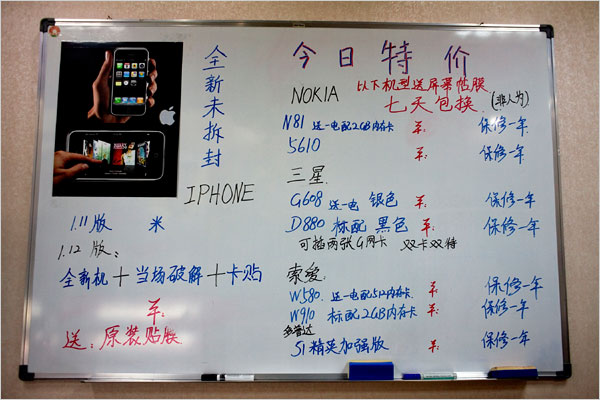 全新未拆封
IPHONE
1.11版 米
1.12版:
全新机+当场破解+卡贴
¥:
送:原装贴膜
今日特价
以下机型送屏幕帖膜
NOKIA 七天包换 (非人为)
N81 送一电配2GB内存卡 ¥: 保修一年
5610 ¥: 保修一年
三星
G608 送一电 银色 ¥: 保修一年
D880 标配 黑色 ¥: 保修一年
可插两张G网卡 双卡双待
索爱
W580 送一电配512内存卡 ¥: 保修一年
W910 标配2GB内存卡 ¥: 保修一年
多普达
S1精英加强版 ¥: 保修一年